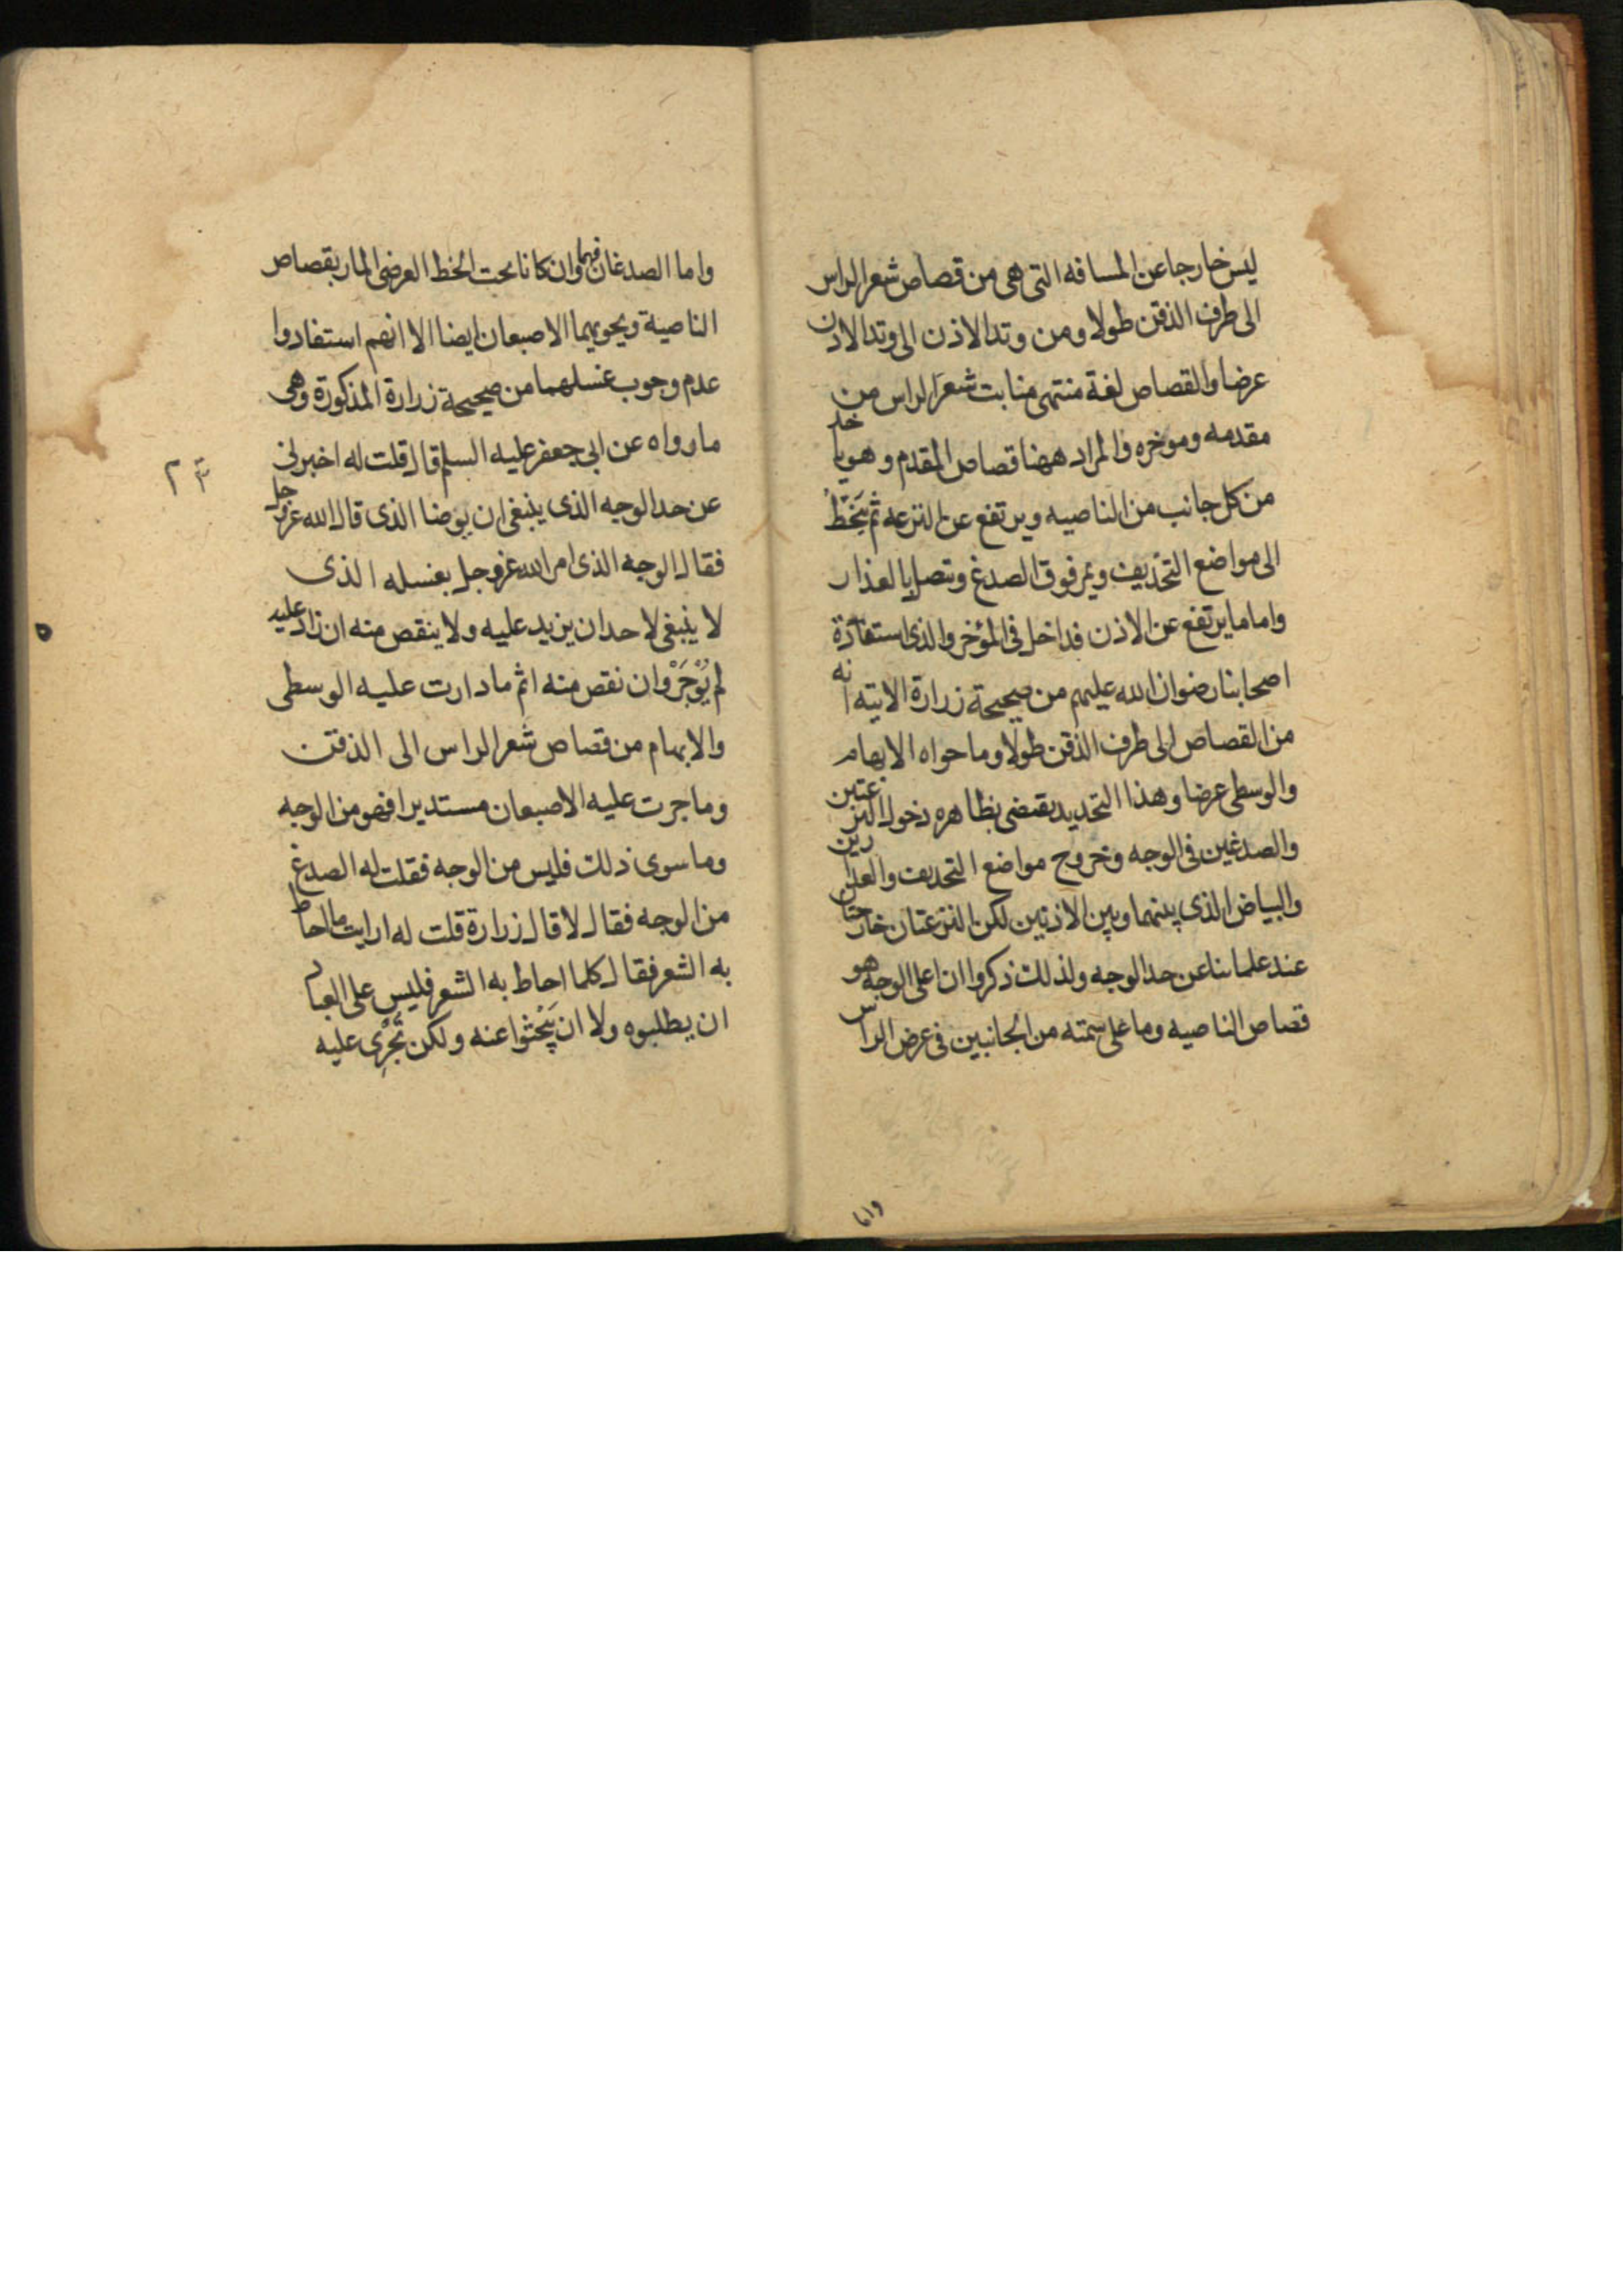 ليس خارجا عن المسافه التى هى من قصاص شعر الراس
الى طرف الذقن طولا ومن وتد الاذن الى وتد الاذن
عرضا والقصاص لغة منتهى منابت شعر الراس من
مقدمه وموخره والمراد ههنا قصاص المقدم وهو ياخذ
من كل جانب من الناصيه ويرتفع عن النزعه ثم ينحط
الى مواضع التحذيف ويمر فوق الصدغ ويتصل بالعذار
واما ما يرتفع عن الاذن فداخل فى المؤخر والذى استفاده
اصحابنا رضوان الله عليهم من صحيحة زرارة الاتيه انه
من القصاص الى طرف الذقن طولا وما حواه الابهام
والوسطى عرضا وهذا التحديد يقتضى بظاهره دخول النزعتين
والصدغين فى الوجه وخروج مواضع التحذيف والعذارين
والبياض الذى بينهما وبين الاذنين لكن النزعتان خارجتان
عند علمائنا عن حد الوجه ولذلك ذكروا ان اعلى الوجه هو
قصاص الناصيه وما على سمته من الجانبين فى عرض الراس
واما الصدغان فهما وان كانا تحت الخط العرضى المار بقصاص
الناصية ويحويهما الاصبعان ايضا الا انهم استفادوا
عدم وجوب غسلهما من صحيحة زرارة المذكورة وهى
ما رواه عن ابى جعفر عليه السلم قال قلت له اخبرنى
عن حد الوجه الذى ينبغى ان يوضا الذى قال الله عز وجل
فقال الوجه الذى امر الله عز وجل بغسله الذى
لا ينبغى لاحد ان يزيد عليه ولا ينقص منه ان زاد عليه
لم يؤجر وان نقص منه اثم ما دارت عليه الوسطى
والابهام من قصاص شعر الراس الى الذقن
وما جرت عليه الاصبعان مستديرا فهو من الوجه
وما سوى ذلك فليس من الوجه فقلت له الصدغ
من الوجه فقال لا قال زرارة قلت له ارايت ما احاط
به الشعر فقال كلما احاط به الشعر فليس على العباد
ان يطلبوه ولا ان يبحثوا عنه ولكن تجرى عليه